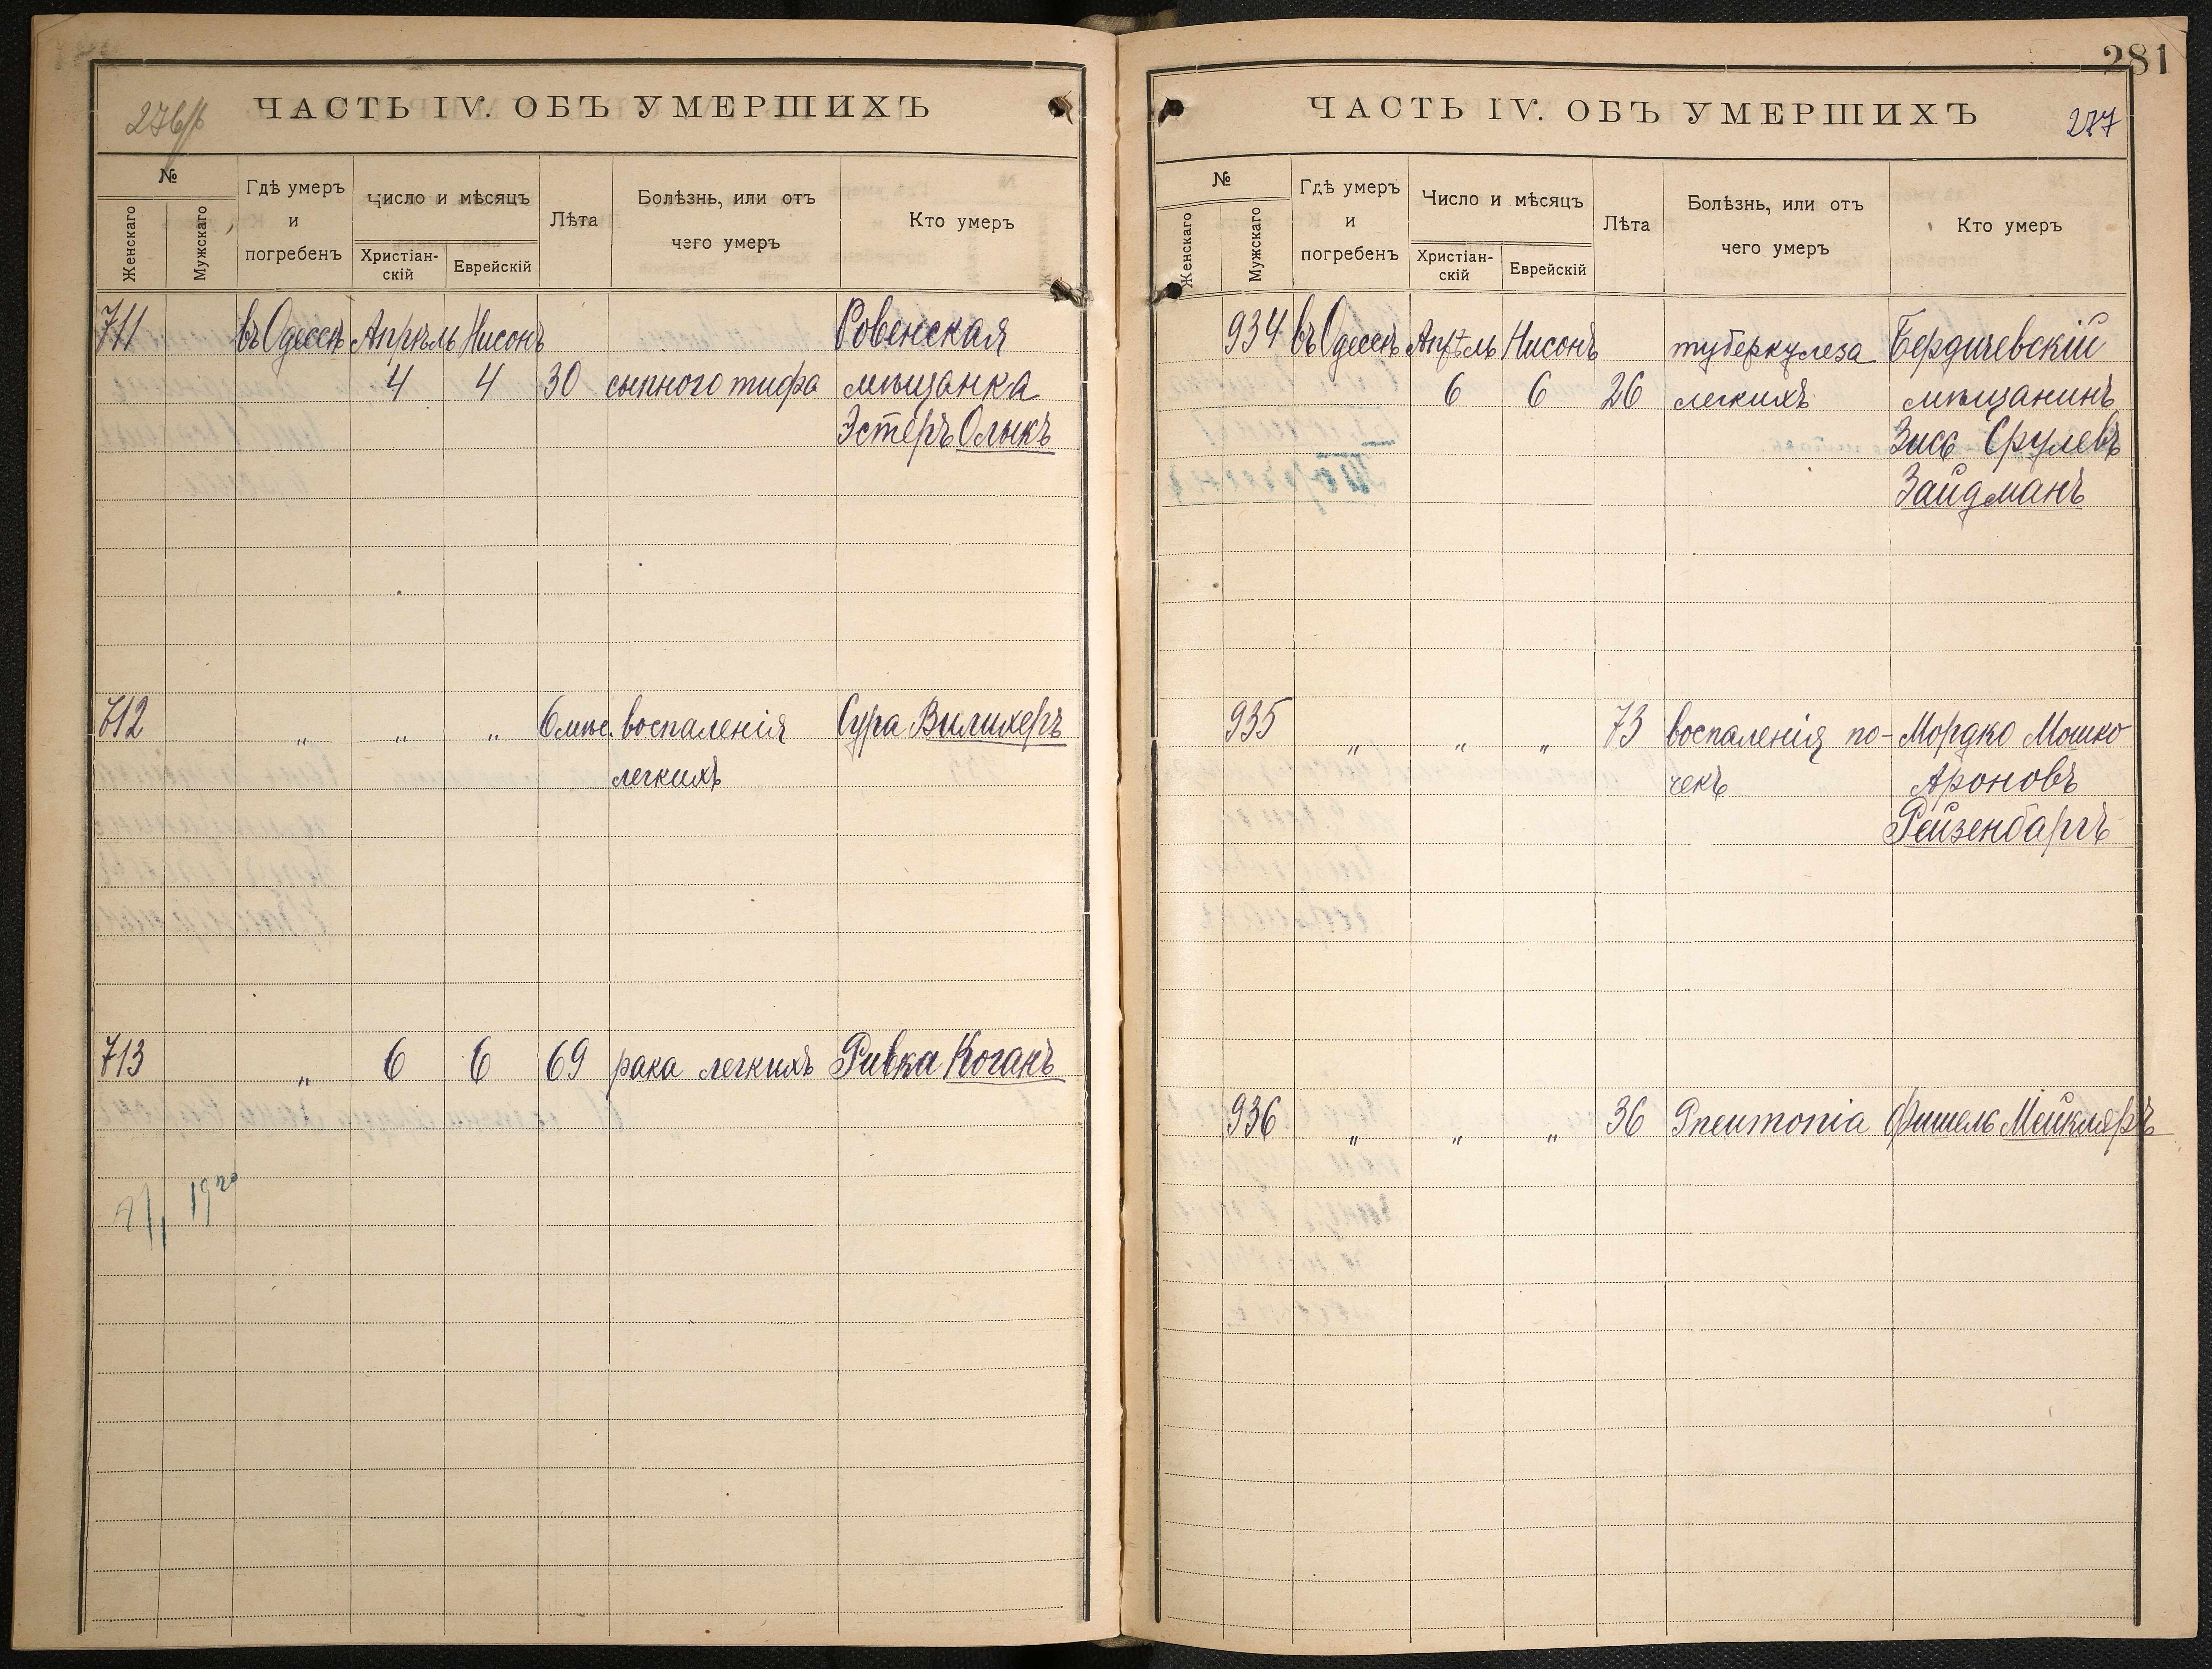 276/б
ЧАСТЬ IV. ОБЪ УМЕРШИХЪ
№
Женскаго
Мужскаго
Гдѣ умеръ
и
погребенъ
Число и мѣсяцъ
Христіан-
скій
Еврейскій
Лѣта
Болѣзнь, или отъ
чего умеръ
Кто умеръ
711 въ Одессѣ Апрѣль Нисонъ Ровенская
4 4 30 сыпного тифа мѣщанка
Эстеръ Олыкъ
712 " " " 6 мѣс. воспаленія Сура Вилихеръ
легкихъ
713 " 6 6 69 рака легкихъ Ривка Коганъ
281
ЧАСТЬ IV. ОБЪ УМЕРШИХЪ
277
№
Женскаго
Мужскаго
Гдѣ умеръ
и
погребенъ
Число и мѣсяцъ
Христіан-
скій
Еврейскій
Лѣта
Болѣзнь, или отъ
чего умеръ
Кто умеръ
934 въ Одессѣ Апрѣль Нисонъ туберкулеза Бердичевскій
6 6 26 легкихъ мѣщанинъ
Зись Срулевъ
Зайдманъ
935 " " " 73 воспаленія по- Мордко Мошко
чекъ Ароновъ
Рейзенбаргъ
936 " " " 36 Pneumonia Фишель Мейклеръ